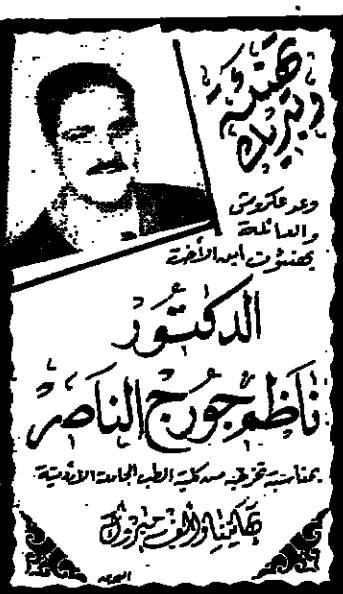 تهنئة
وتبريك
وعد عكروش
والعائلة
يهنئون ابن الأخت
الدكتور
ناظم جورج الناصر
بمناسبة تخرجه من كلية الطب الجامعة الأردنية
تهانينا والف مبروك